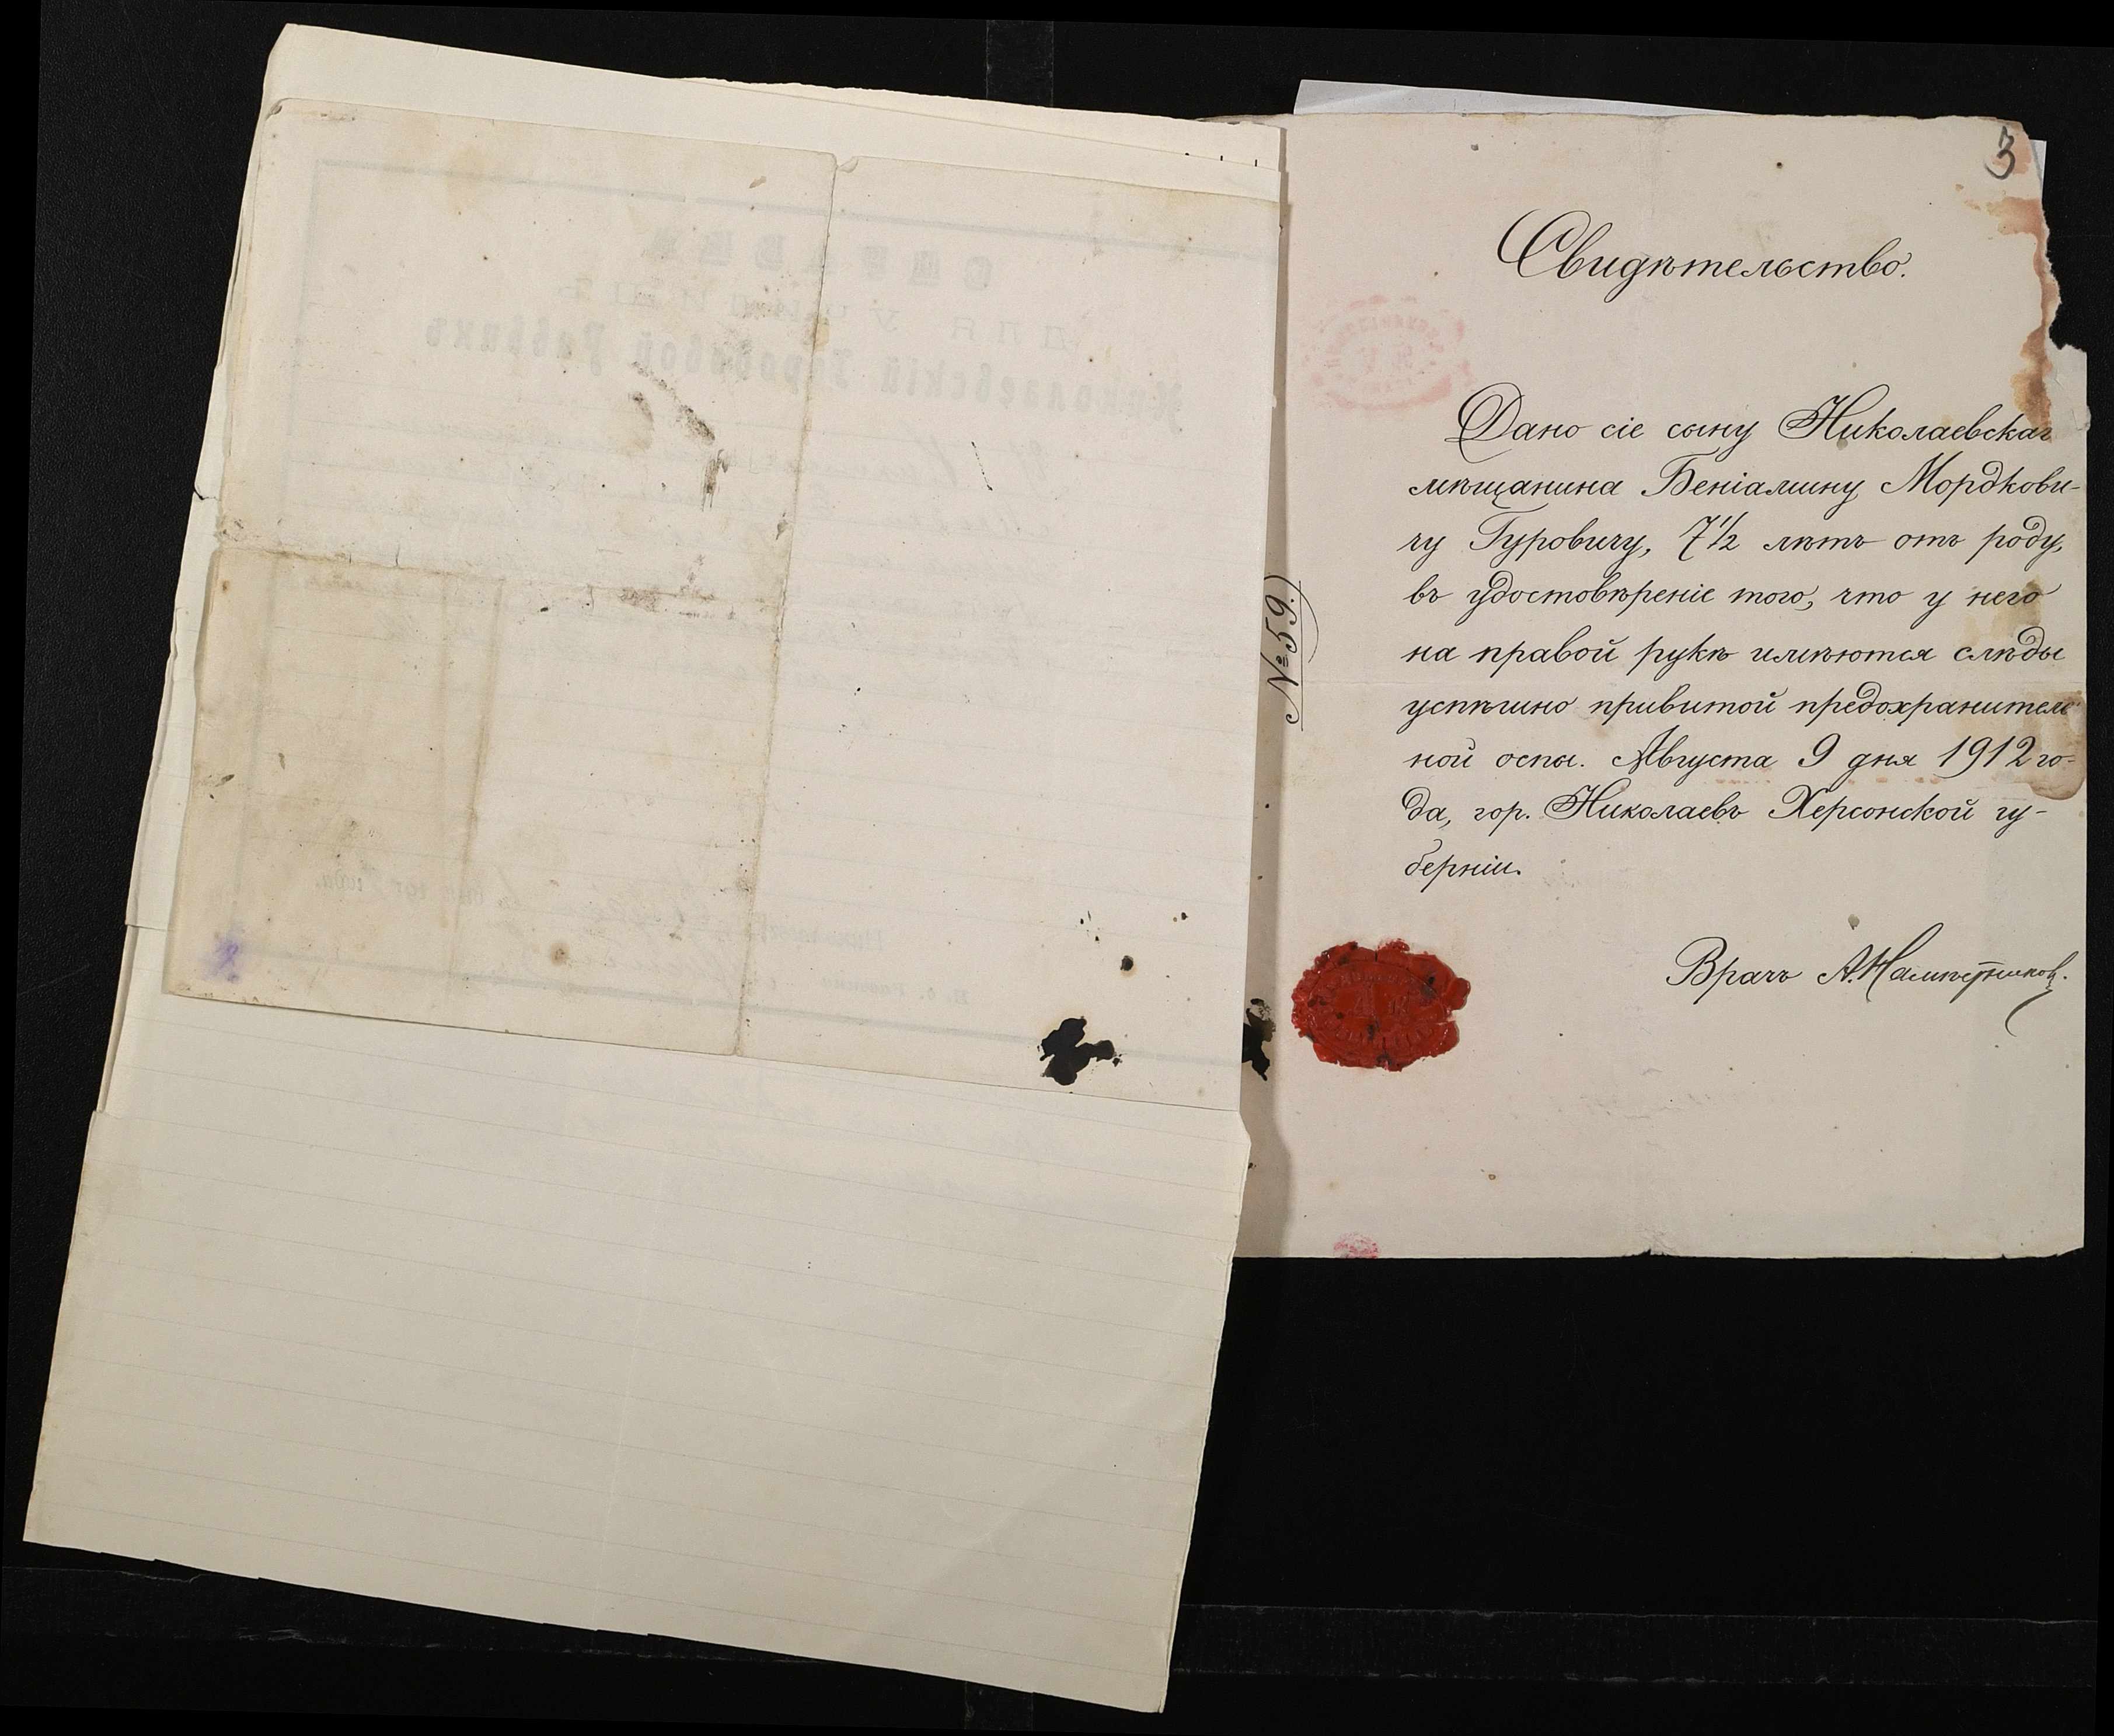 3
Свидѣтельство.
Дано сіе сыну Николаевскаг
мѣщанина Беніамину Мордкови-
чу Гуровичу, 7½ лѣтъ отъ роду,
въ удостовѣреніе того, что у него
на правой рукѣ имѣются слѣды
успѣшно привитой предохранитель
ной оспы. Августа 9 дня 1912 го-
да, гор. Николаевъ Херсонской гу-
берніи.
Врачъ А. Намѣстников.
№ 59.
Николаевскій Городовой Раввинъ